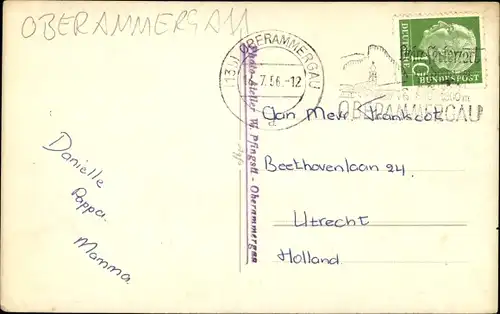 OBERAMMERGAU
(13b) OBERAMMERGAU
7.56.-12
DEUTSCHE
BUNDESPOST
10
OBERAMMERGAU
Photo-Atelier W. Pfingstl - Oberammergau
Jan Mevr
Beethovenlaan 24.
Utrecht
Holland.
Danielle
Pappa.
Mamma.